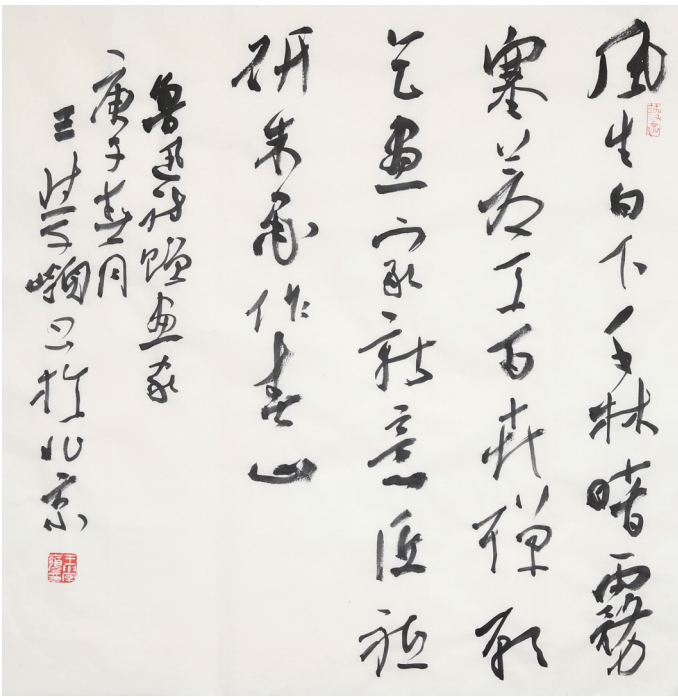 風生白下千林暗霧
塞蒼天百卉殫願
乞畫家新意匠祗
研朱墨作春山
魯迅詩贈畫家
庚子春月
王學嶺書於北京